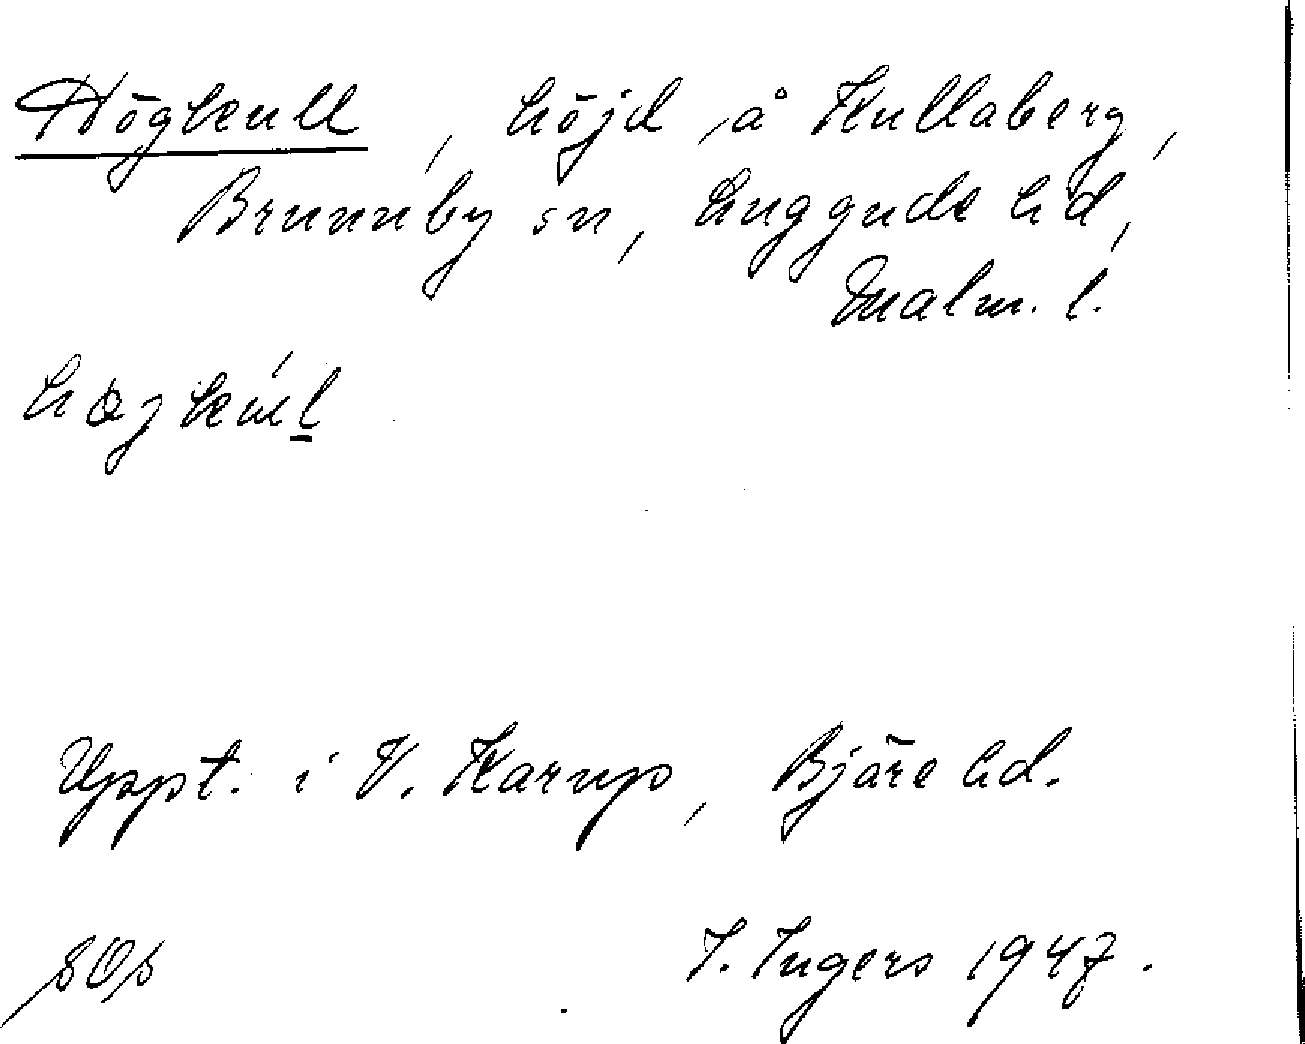 Högkull, höjd å Kullaberg,
Brunnby sn, Luggude hd,
Malm. l.
Uppt. i V. Karup, Bjäre hd.
I. Ingers 1947.